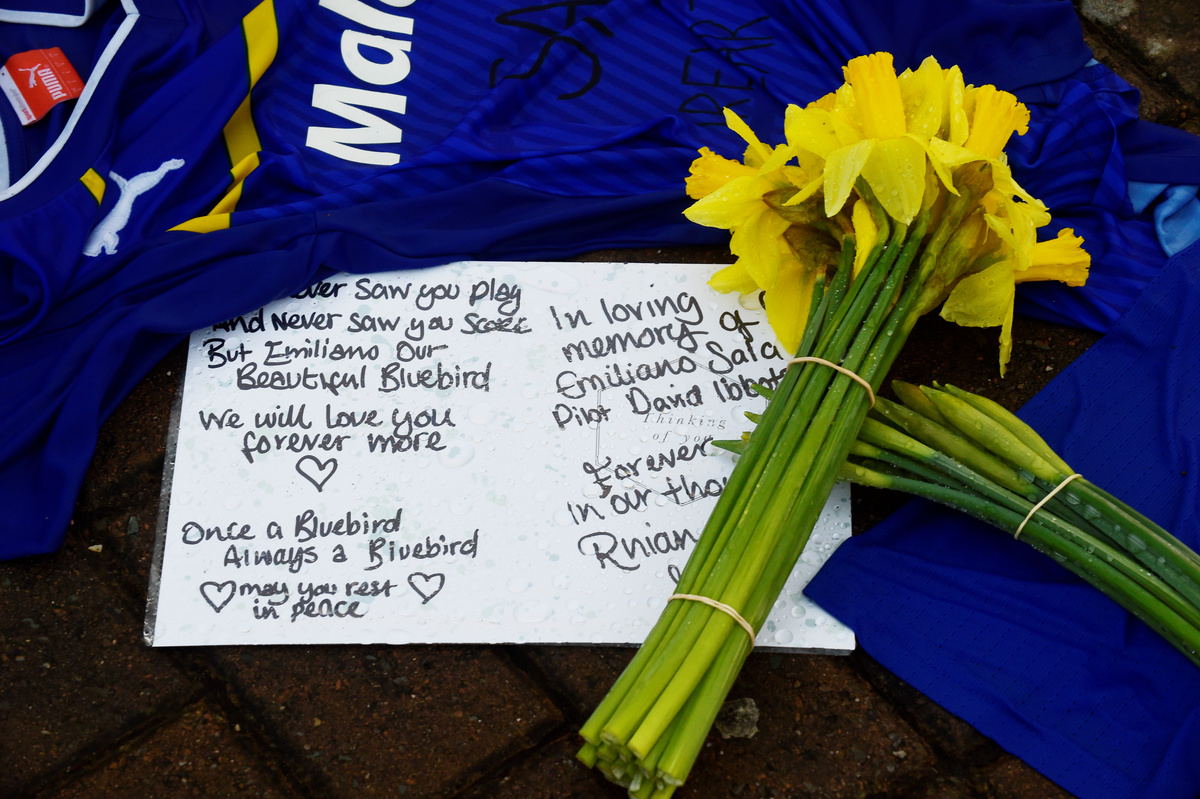 PUMA
Mala
SA
ever Saw you play
And Never saw you Score
But Emiliano Our
Beautiful Bluebird
We will Love you
forever more
Once a Bluebird
Always a Bluebird
may you rest
in peace
In loving
memory of
Emiliano Sala
Pilot David Ibbot
Thinking
of you
Forever
In our thou
Rhian